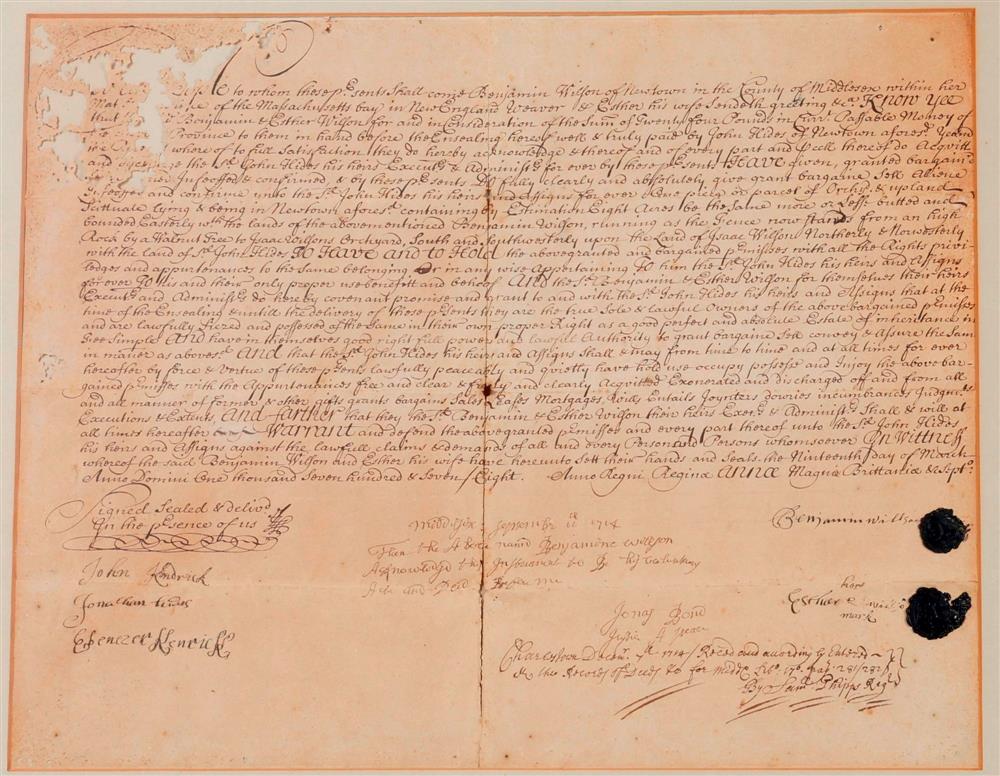 People to whom these pʳsents Shall come Benjamin Wilson of Newtown in the County of Middlesex within her
Maj of the Massachusetts bay in New England Weaver & Esther his wife Sendeth greeting &cᵃ Know Yee
that Benjamin & Esther Wilson for and in Consideration of the Sum of Twenty four Pounds in Currᵗ Passable Money of
Province to them in hand before the Ensealing hereof well & truly paid by John Hides of Newtown aforesᵈ Yeoman
whereof to full Satisfaction they do hereby acknowledge & thereof and of every part and Pʳcell thereof do Acquitt
and the sᵈ John Hides his heirs Executʳˢ & Administʳˢ for ever by these pʳsents Have given, granted bargaind
Infeoffed & confirmed & by these pʳsents Do fully clearly and absolutely give grant bargaine Sell Aliene
Infeoffe and confirme unto the sᵈ John Hides his heirs and Assigns for ever One piece or parcel of Orchʳᵈ & upland
Scittuate lying & being in Newtown aforesᵈ containing by Estimation Eight Acres be the Same more or Less butted and
bounded Easterly wᵗʰ the lands of the abovementioned Benjamin Wilson, running as the Fence now stands from an high
Rock by a Walnut Tree to Isaac Wilsons Orchyard, South and Southwesterly upon the Land of Isaac Wilson Northerly & Nowesterly
with the land of sᵈ John Hides To Have and to Hold the abovegranted and bargained pʳmisses with all the Rights privi
ledges and appurtenances to the Same belonging Or in any wise Appertaining To him the sᵈ John Hides his heirs and Assigns
for ever To his and their only proper use benefitt and behoof And the sᵈ Benjamin & Esther Wilson for themselves their heirs
Executʳˢ and Administʳˢ do hereby covenant promise and grant to and with the sᵈ John Hides his heirs and Assigns that at the
time of the Ensealing & untill the delivery of these pʳsents they are the true Sole & lawful Owners of the above bargained pʳmisses
and are lawfully Siezed and possessed of the Same in their own proper Right as a good perfect and absolute Estate of inheritance in
Fee Simple And have in themselves good right full power and lawfull Authority to grant bargaine Sell convey & assure the Same
in maner as abovesᵈ And that the sᵈ John Hides his heirs and Assigns Shall & may from time to time and at all times for ever
hereafter by force & vertue of these pʳsents lawfully peaceably and quietly have hold use occupy possess and Injoy the above bar-
gained pʳmisses with the Appurtenances free and clear & freely and clearly Acquitted Exenerated and discharged off and from all
and all manner of former & other gifts grants bargains Sales Leases Mortgages, Wills Entails Joynters dowries incumbrances Judgmᵗˢ
Executions & Extents And farther that they the sᵈ Benjamin & Esther Wilson their heirs Execʳˢ & Administʳˢ Shall & will at
all times hereafter Warrant and defend the above granted pʳmisses and every part thereof unto the sᵈ John Hides
his heirs and Assigns against the lawfull claims & demands of all and every Person and Persons whomsoever In Wittness
whereof the said Benjamin Wilson and Esther his wife have hereunto Sett their hands and Seals the Ninteenth day of March
Anno Domini One thousand Seven hundred & Seven/Eight. Anno Regni Regina Annæ Magnæ Brittania & Septᵒ
Signed Sealed & delivᵈ
In the pʳsence of us
John Kendrick
Jonathan
Ebenezer Kenrick
Middlˢˣ September 11 1714
Then the Above namd Benjamine willson
Acknowledgd this Instrument to Be his voluntary
Act and Deed Before me
Jonas Bond
Justice of Peace
Benjamin willson
hers
Esther willson
mark
Charlestown Decemʳ 1714/ Received and according by Entered
the Records of Deeds &c for Middˣ Libᵒ 17ᵒ pag. 281/282
By Samˡ Phipps Regʳ